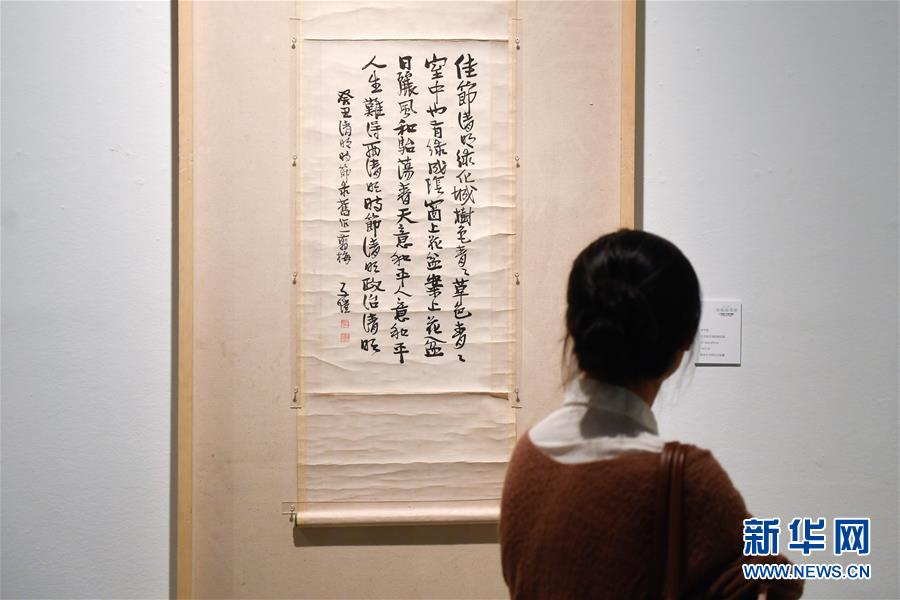 佳節清明綠化城樹色青〻草色青〻
室中也有綠成陰窗上花盆案上花盆
日麗風和駘蕩春天意和平人意和平
人生難得兩清明時節清明政治清明
癸丑清明時節录舊作一翦梅 子愷
新华网
WWW.NEWS.CN